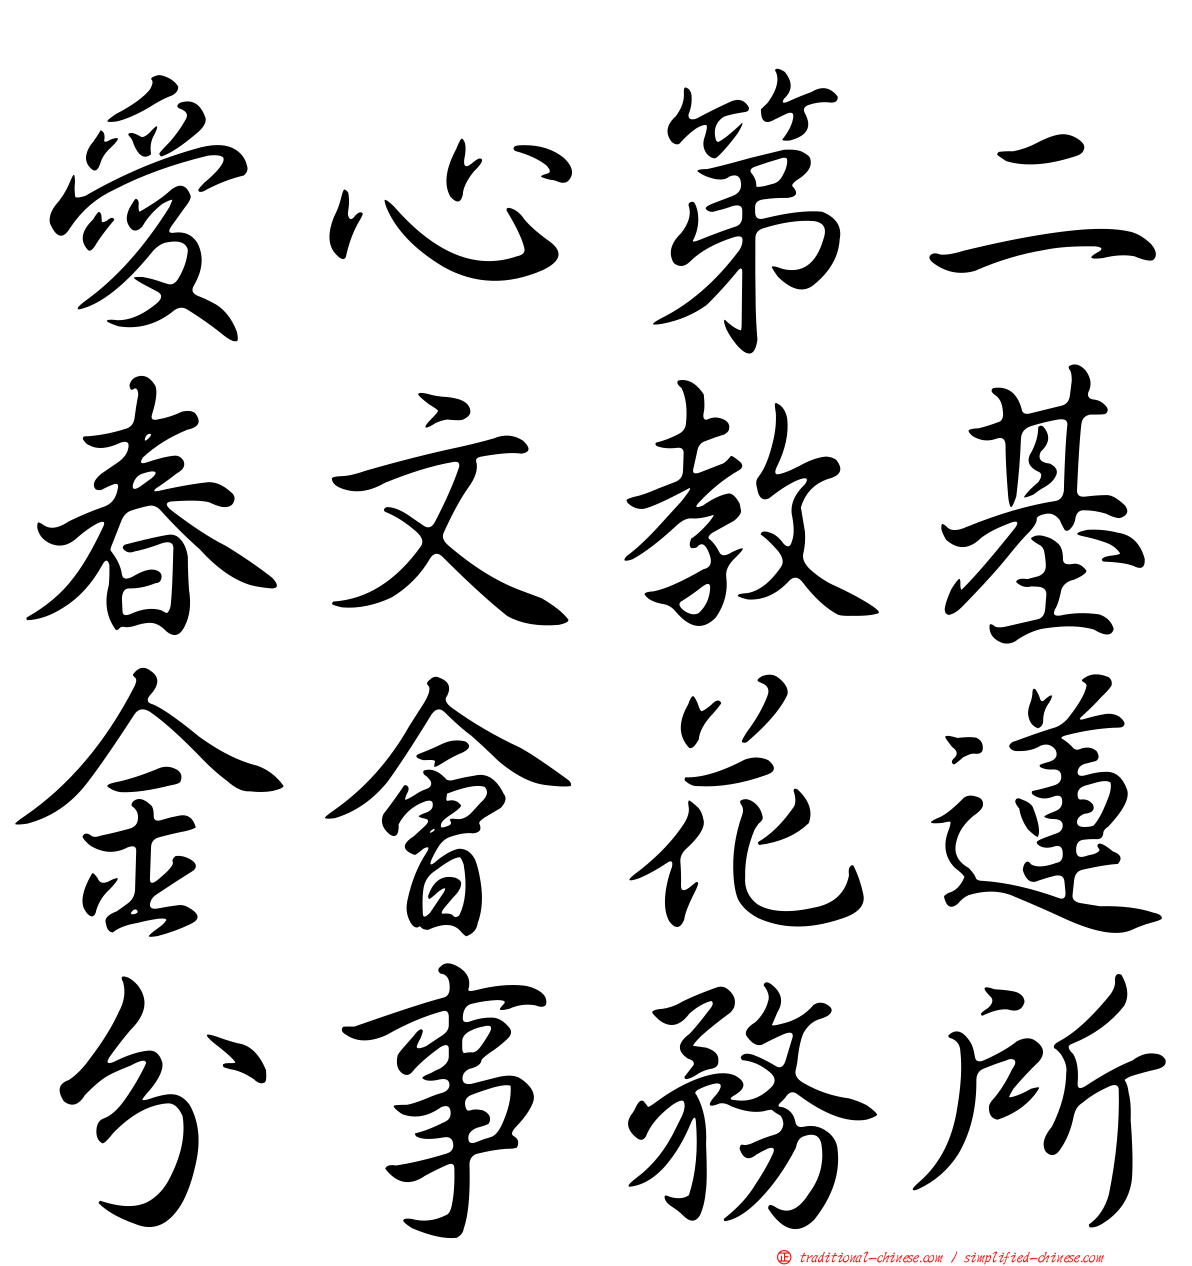 愛心第二
春文教基
金會花蓮
分事務所
正 traditional-chinese.com / simplified-chinese.com